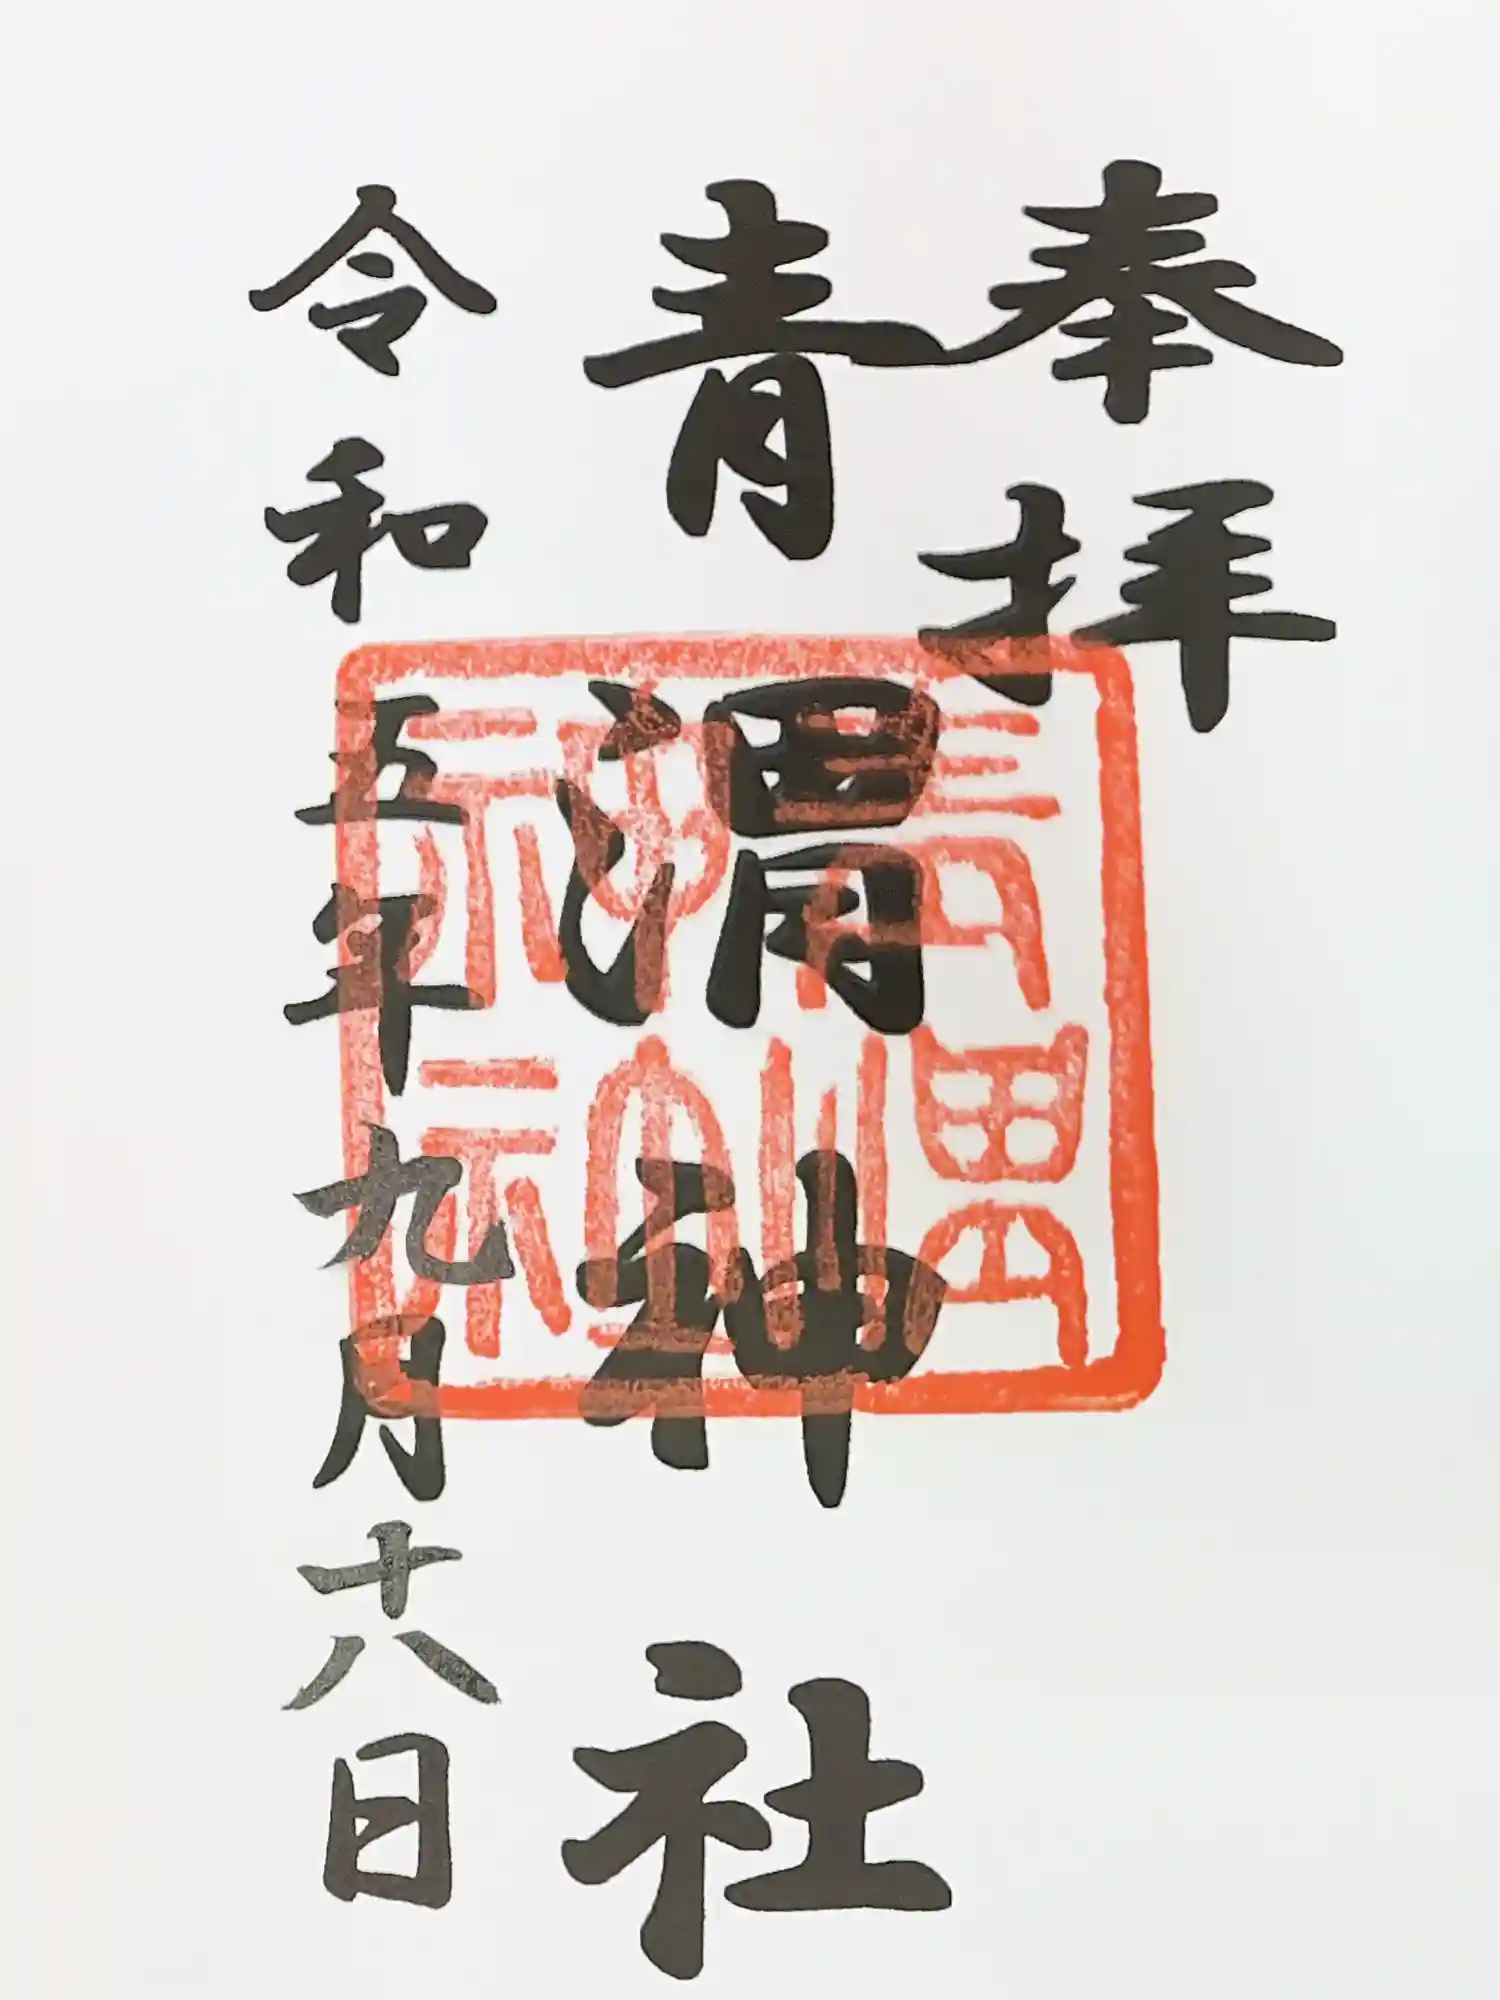 奉拝
青渭神社
令和五年九月十八日
青渭
神社